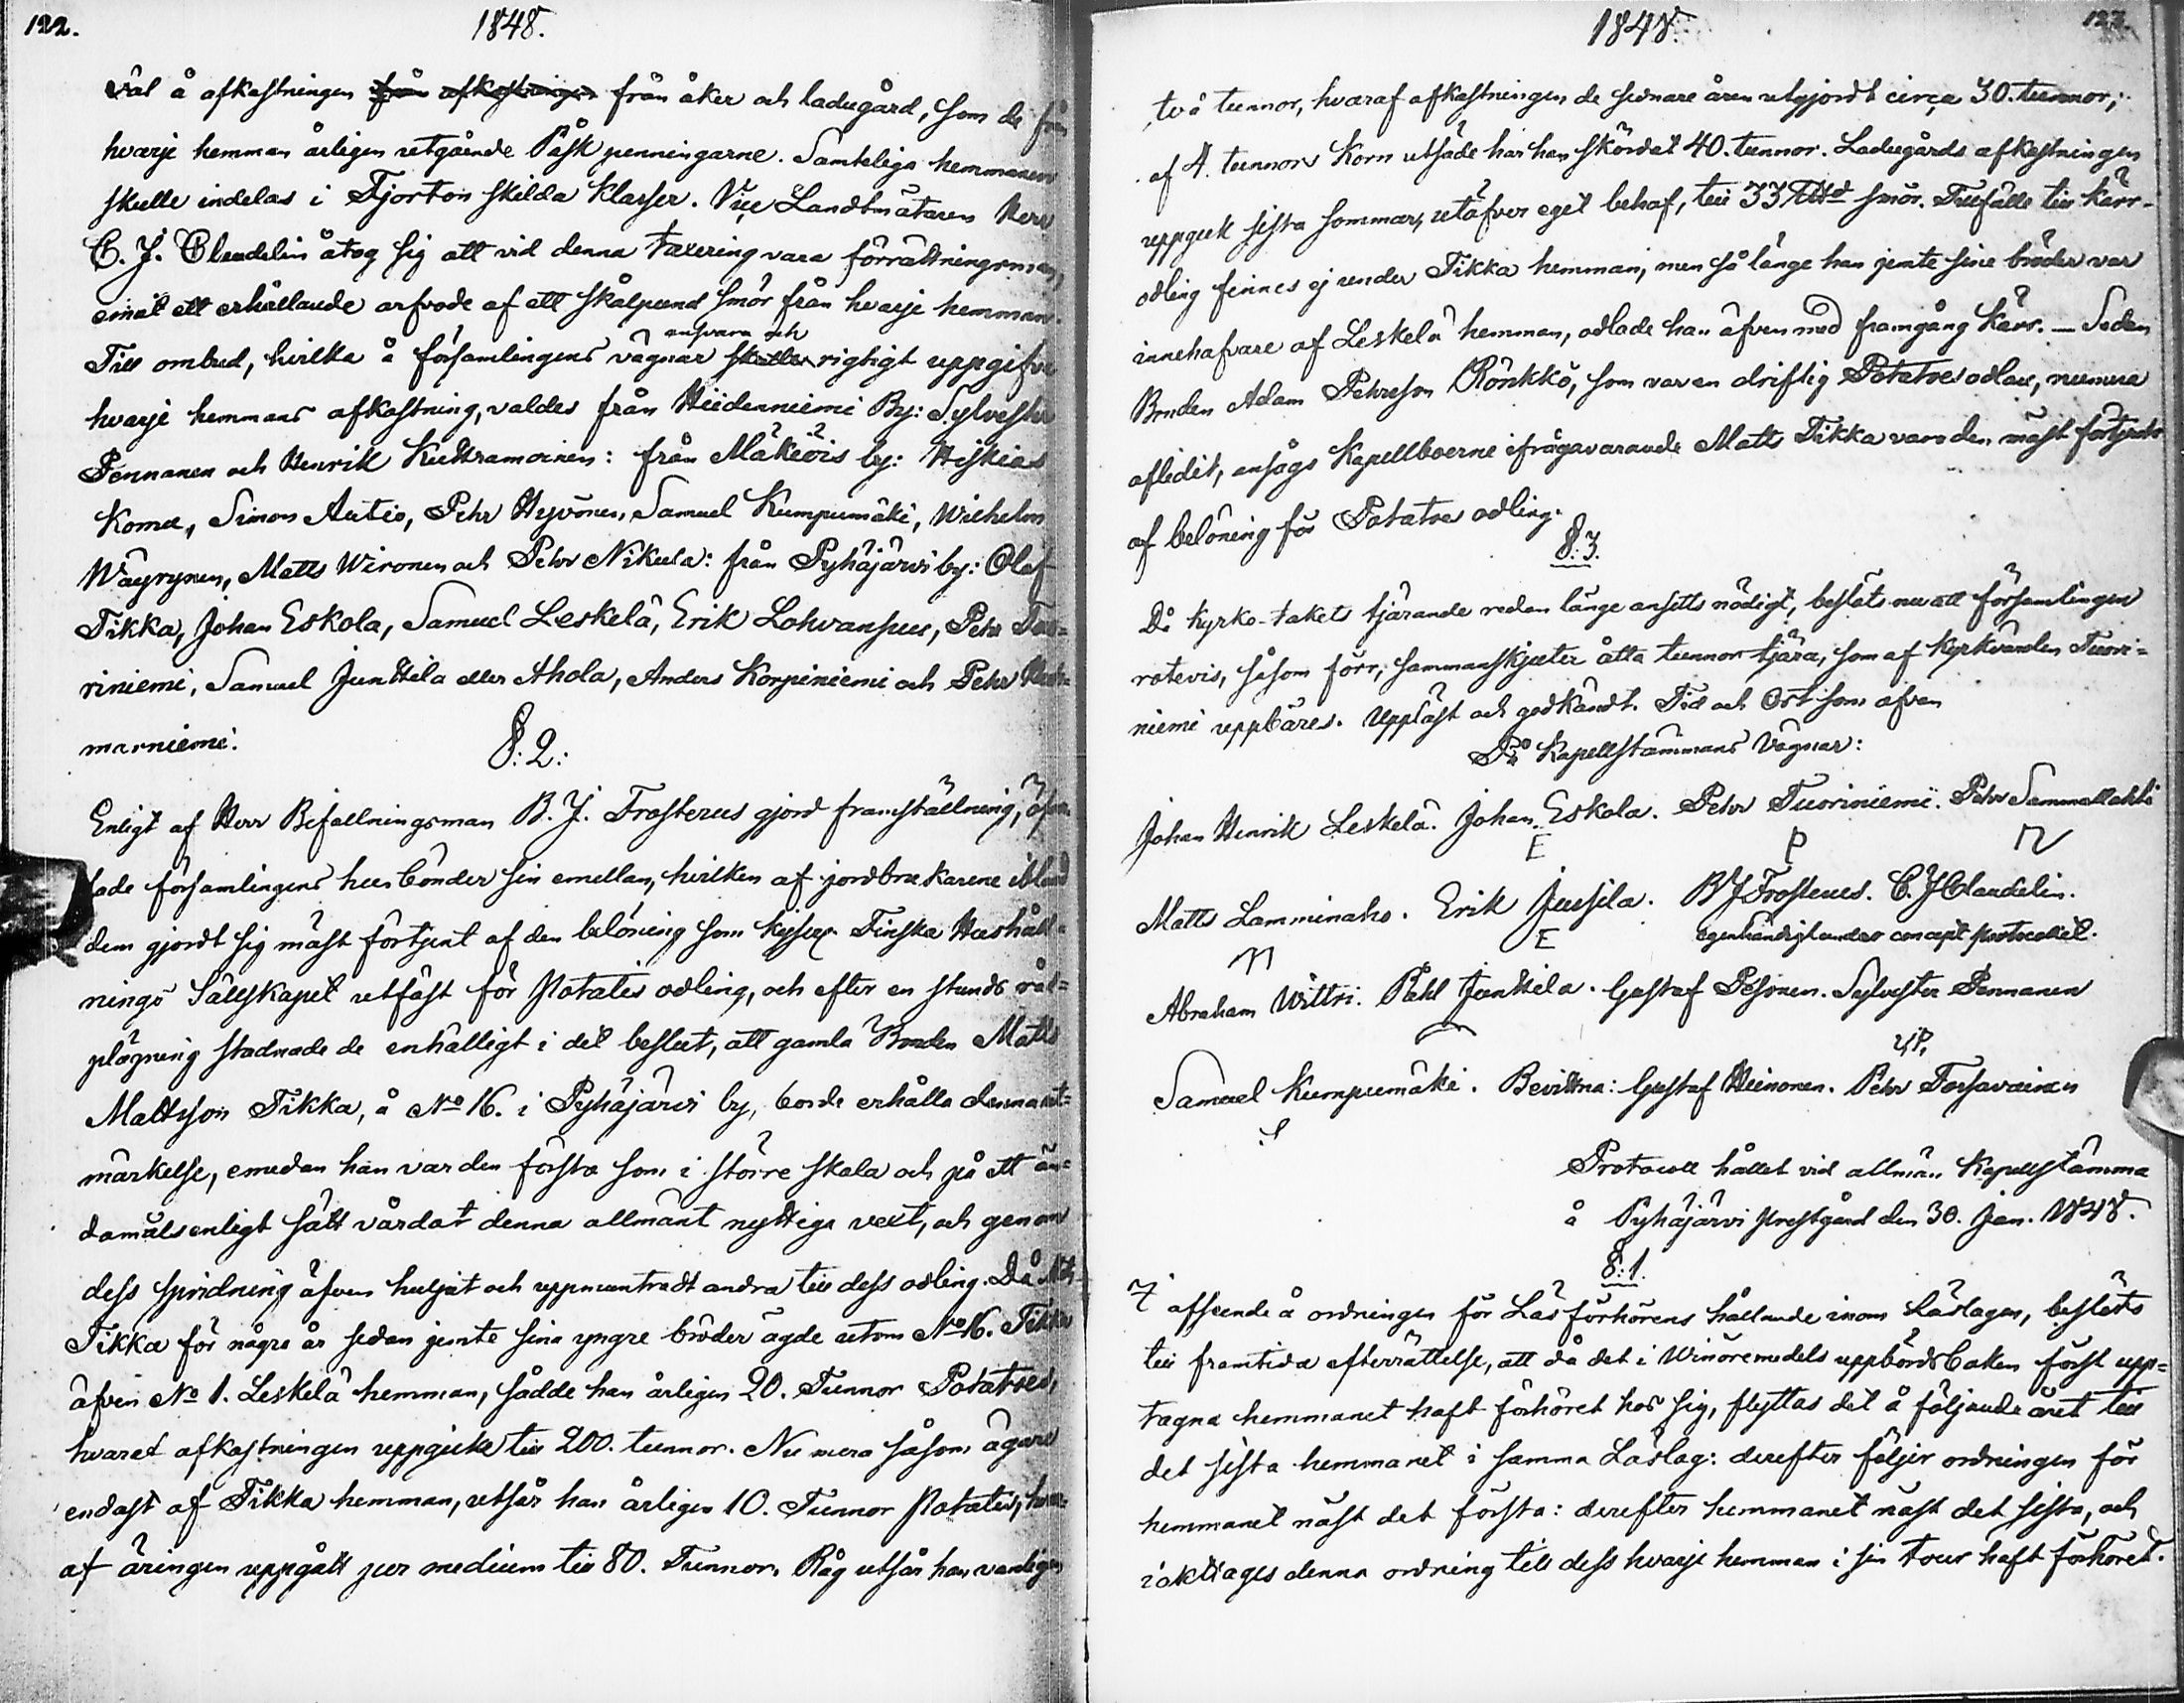 122.
1848.
väl å afkastningen från afkastningen från åker och ladugård, som de från
hvarje hemman årligen utgående Påsk penningarne. Samteliga hemmanen
skulle indelas i Fjorton skilda klasser. Vice Landtmätaren Herr
C. J. Claudelin åtog sig att vid denna taxering vara förrättningsman,
emot ett erhållande arfvode af ett skålpund smör från hvarje hemman.
ansvara och
Till ombud, hvilka å församlingens vägnar skulle rigtigt uppgifva
hvarje hemmans afkastning, valdes från Hiidenniemi By: Sylvester
Pennanen och Henrik Kuttramoinen: från Mäkiöis by: Hiskias
Komu, Simon Autio, Pehr Hyvönen, Samuel Kumpumäki, Wilhelm
Wäyrynen, Matts Wironen och Pehr Nikula: från Pyhäjärvi by: Olof
Tikka, Johan Eskola, Samuel Leskelä, Erik Lohvansuu, Pehr Tuo=
riniemi, Samuel Junttila eller Ahola, Anders Korpiniemi och Pehr
marniemi.
§: 2:
Enligt af Herr Befallningsman B. J. Frosterus gjord framställning,
lade församlingens husbönder sin emellan, hvilken af jordbrukarene ibland
dem gjordt sig mäst förtjent af den belöning som Kejserl. Finska Hushåll=
nings Sällskapet utfäst för Potatis odling, och efter en stunds råd=
plägning stadnade de enhälligt i det beslut, att gamla Bonden Matts
Mattsson Tikka, å No 16. i Pyhäjärvi by, borde erhålla denna ut=
märkelse, emedan han var den första som i större skala och på ett än=
damålsenligt sätt vårdat denna allmänt nyttiga vext, och genom
dess spridning äfven hulpit och uppmuntradt andra till dess odling. Då
Tikka för några år sedan jemte sina yngre bröder ägde utom No 16. Tikka
äfven No 1. Leskelä hemman, sådde han årligen 20. Tunnor Potatoes,
hvaraf afkastningen uppgick till 200. tunnor. Nu mera såsom ägare
endast af Tikka hemman, utsår han årligen 10. Tunnor Potatis, hvar=
af äringen uppgått per medium till 80. Tunnor. Råg utsår han vanligen
1848.
123.
två tunnor, hvaraf afkastningen de sednare åren utgjordt circa 30. tunnor;
af 4. tunnors Korn utsäde har han skördat 40. tunnor. Ladugårds afkastningen
uppgick sista sommar, utöfver eget behof, till 33 smör. Tillfälle till kärr-
odling finnes ej under Tikka hemman, men så länge han jemte sine bröder var
innehafvare af Leskelä hemman, odlade han äfven med framgång kärr. — Sedan
Bonden Adam Pehrsson Rönkkö, som var en driftig Potatoes odlare, numera
aflidit, ansågs Kapellboerne ifrågavarande Matts Tikka vara den mäst förtjente
af belöning för Potatoes odling.
§: 3.
Då kyrko-takets tjärande redan länge ansetts nödigt, beslöts nu att församlingen
rotevis, såsom förr, sammanskjuter åtta tunnor tjära, som af kyrkvärden Tuori=
niemi uppbäres. Uppläst och godkändt. Tid och Ort som ofvan
På Kapellstämmans Vägnar:
Johan Henrik Leskelä. Johan Eskola. Pehr Tuoriniemi. Pehr Sammallahti
E P
Matts Lamminaho. Erik Jussila. B J Frosterus. C. J Claudelin.
E egenhändigt under concept protocollet.
Abraham Wittri. Påhl Junttila. Gustaf Pesonen. Sylvester Pennanen
Samuel Kumpumäki. Bevittna: Gustaf Heinonen. Pehr Torsavainen
Protocoll hållet vid allmän Kapellstämma
å Pyhäjärvi Prestgård den 30. Jan. 1848.
§: 1.
I afseende å ordningen för Läsförhörens hållande inom Läslagen, beslöts
till framtida efterrättelse, att då det i Winöremedels uppbördsboken först upp=
tagna hemmanet haft förhöret hos sig, flyttas det å följande året till
det sista hemmanet i samma Läslag: derefter följer ordningen för
hemmanet näst det första: derefter hemmanet näst det sista, och
iakttages denna ordning till dess hvarje hemman i sin tour haft förhöret.